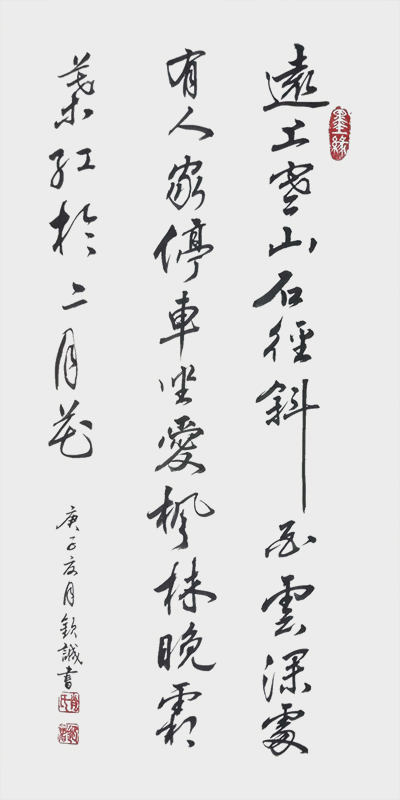 墨緣
遠上寒山石徑斜白雲深處
有人家停車坐愛楓林晚霜
葉紅於二月花
庚子夏月欽誠書